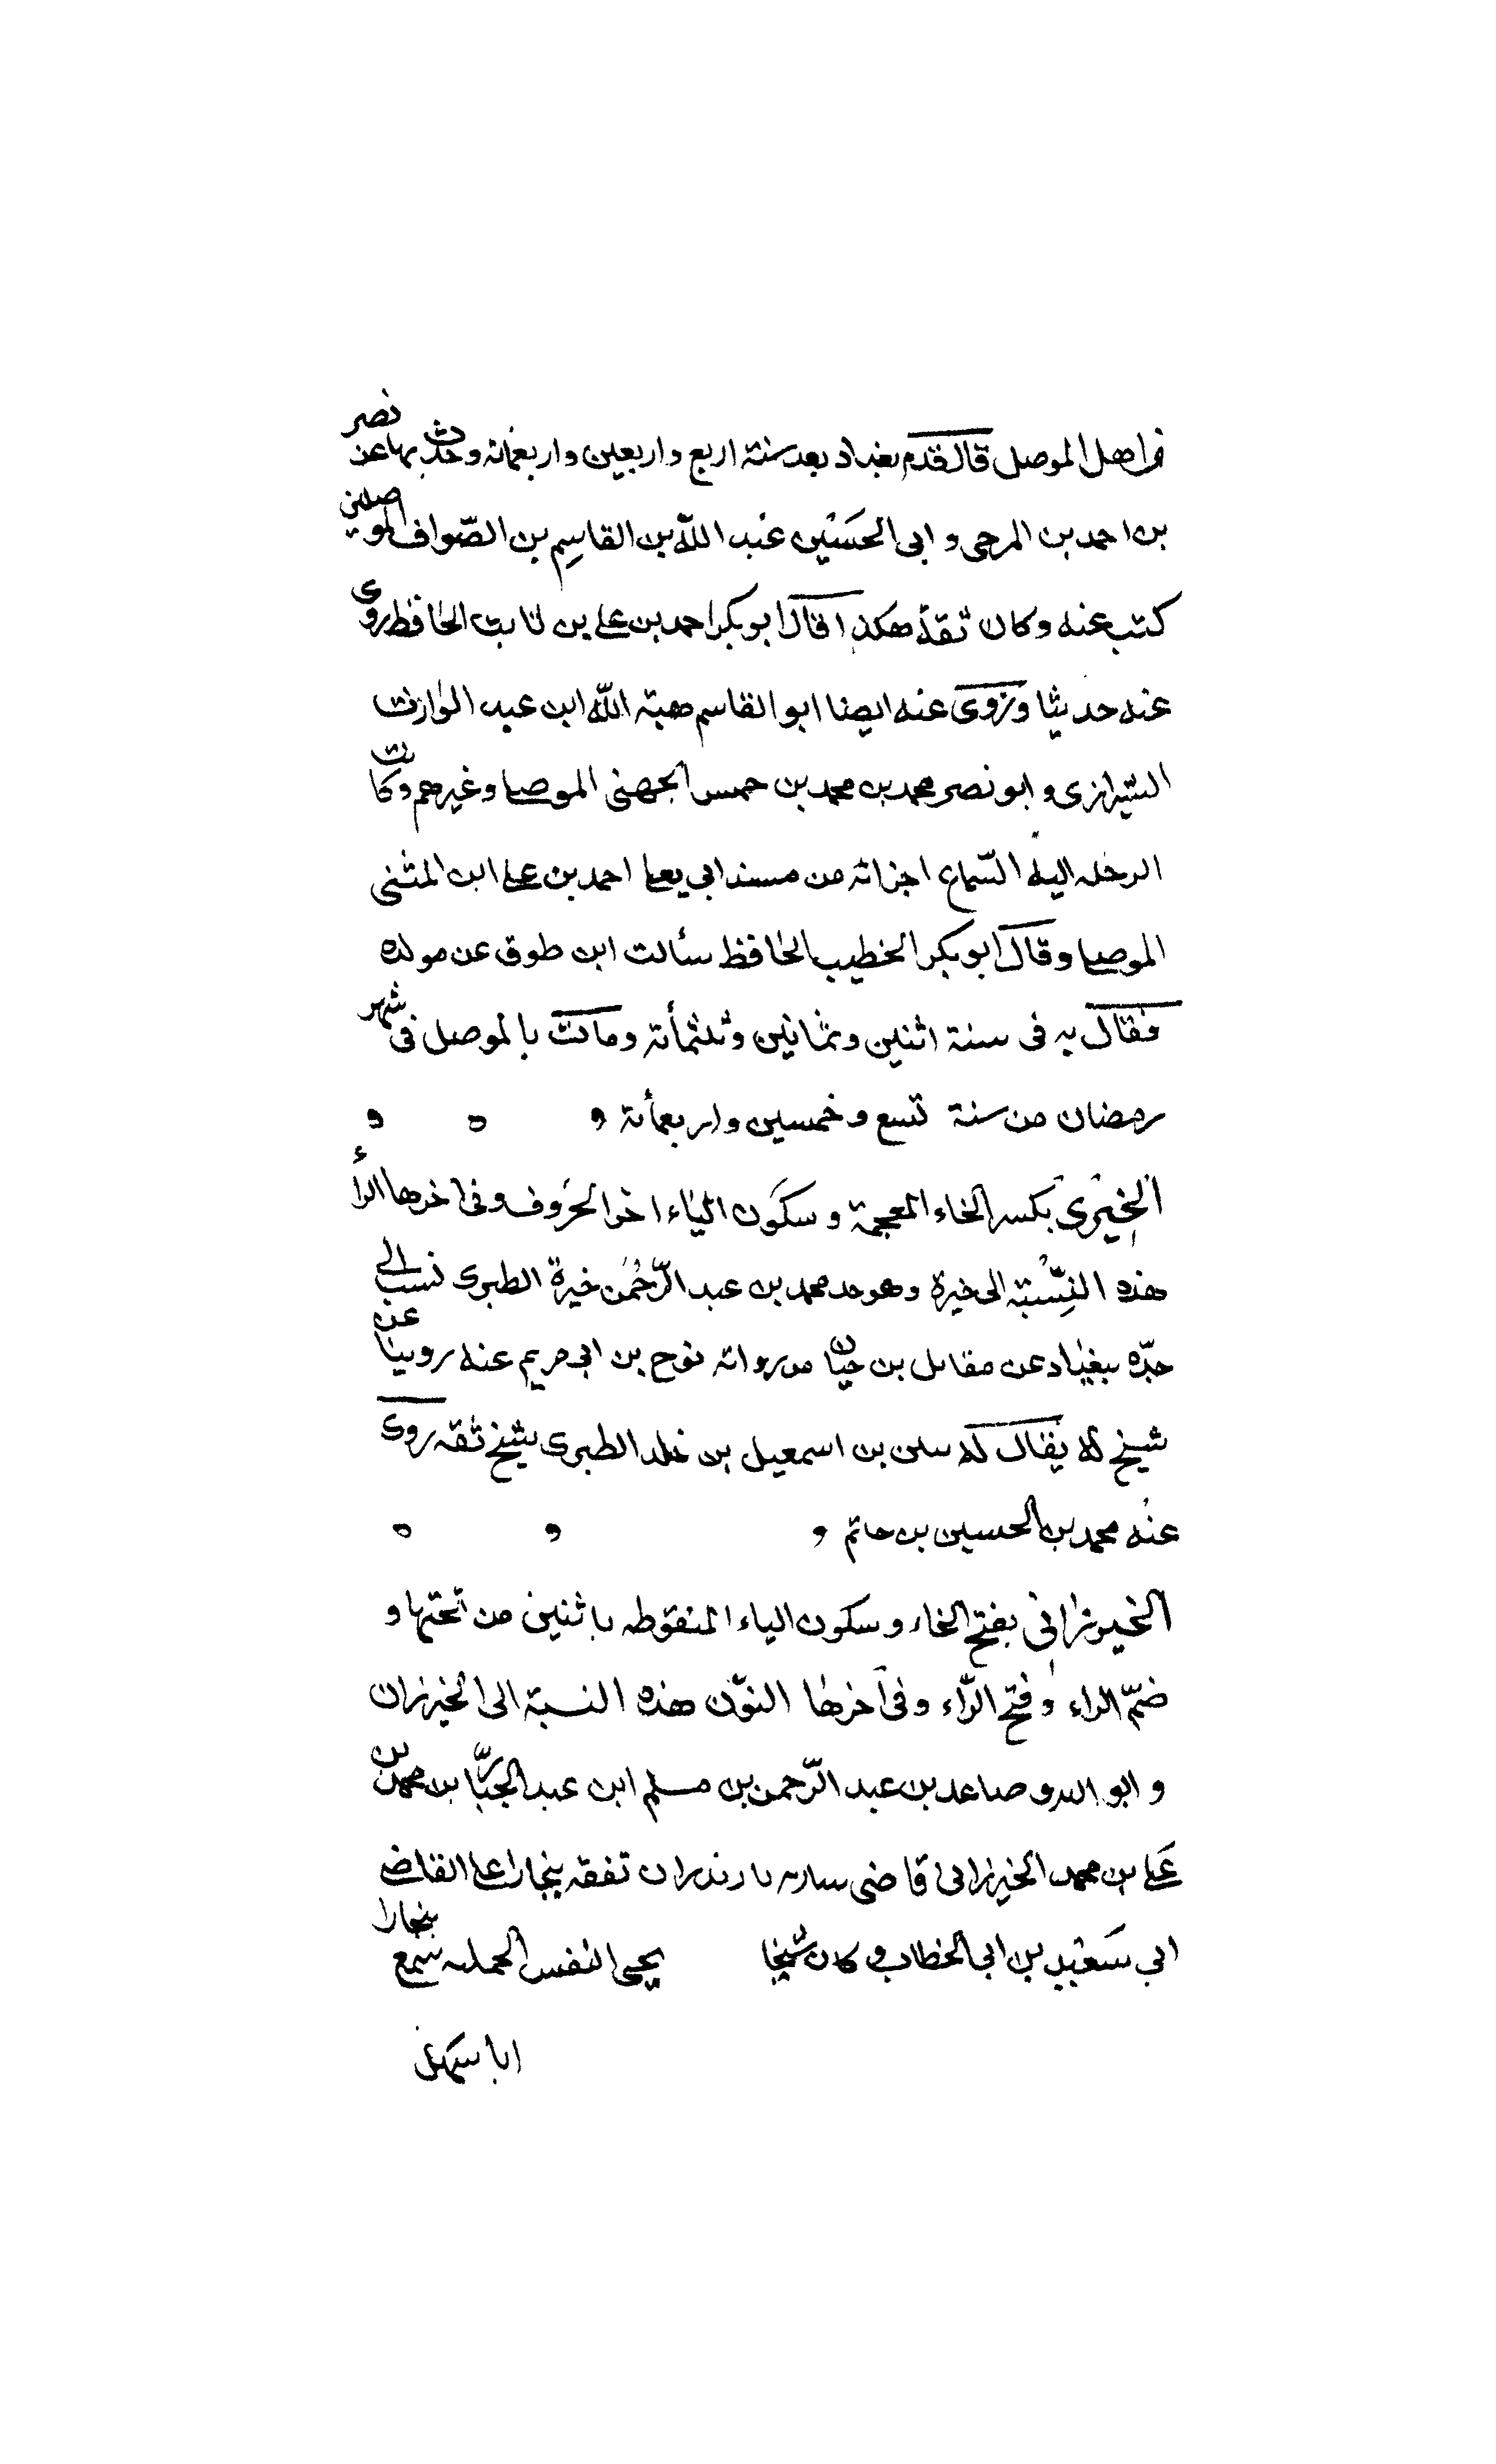 من اهل الموصل قال قدم بغداد بعد سنة اربع واربعين واربعمائة وحدث بها عن نصر
بن احمد بن المرجى و ابى الحسَين عبد الله بن القاسِم بن الصّواف الموصليين
كتب عنه وكان ثقة هكذا قال ابو بكر احمد بن على بن ثابت الحافظ روى
عنه حديثا وروى عنه ايضا ابو القاسم هبة الله ابن عبد الوارث
الشيرازى و ابو نصر محمد بن محمد بن حمس الجهنى الموصلى وغيرهم وكانت
الرحله اليه السّماع اجزائه من مسند ابي يعلى احمد بن على ابن المثنى
الموصلى وقال ابو بكر الخطيب الحافظ سألت ابن طوق عن مولده
فقال به فى سنة اثنين وثمانين وثلثمأئة ومات بالموصل فى شهر
رمضان من سنة تسع وخمسين واربعمأئة
الخِيْرى بكسر الخاء المعجمة وسكون الياء اخر الحروف وفى اخرها الراء
هذه النِّسْبة الى خيرة وهو جد محمد بن عبد الرّحمن خيرة الطبرى نسب الى
جدّه ببغداد عن مقاتل بن حيان من رواية نوح بن ابى مريم عنه روبنا عن
شيخ له يقال له بن اسمعيل بن خلد الطبرى شيخ ثقه روى
عنه محمد بن الحسين بن حاتم
الخيزرانى بفتح الخاء وسكون الياء المنقوطه باثنين من تحتها و
ضمّ الراء وفتح الرّاء وفى آخرها النوّن هذه النسبة الى الخيزران
و ابو صاعد بن عبد الرّحمن بن مسلم ابن عبد الجبّار بن محمد بن
على بن محمد الخيزرانى قاضى ساريه تفقه ببخارا على القاضى
ابى سَعيد بن ابى الخطاب و كان شيخا يحيى النفس سمع ببخارا
ابا سهل